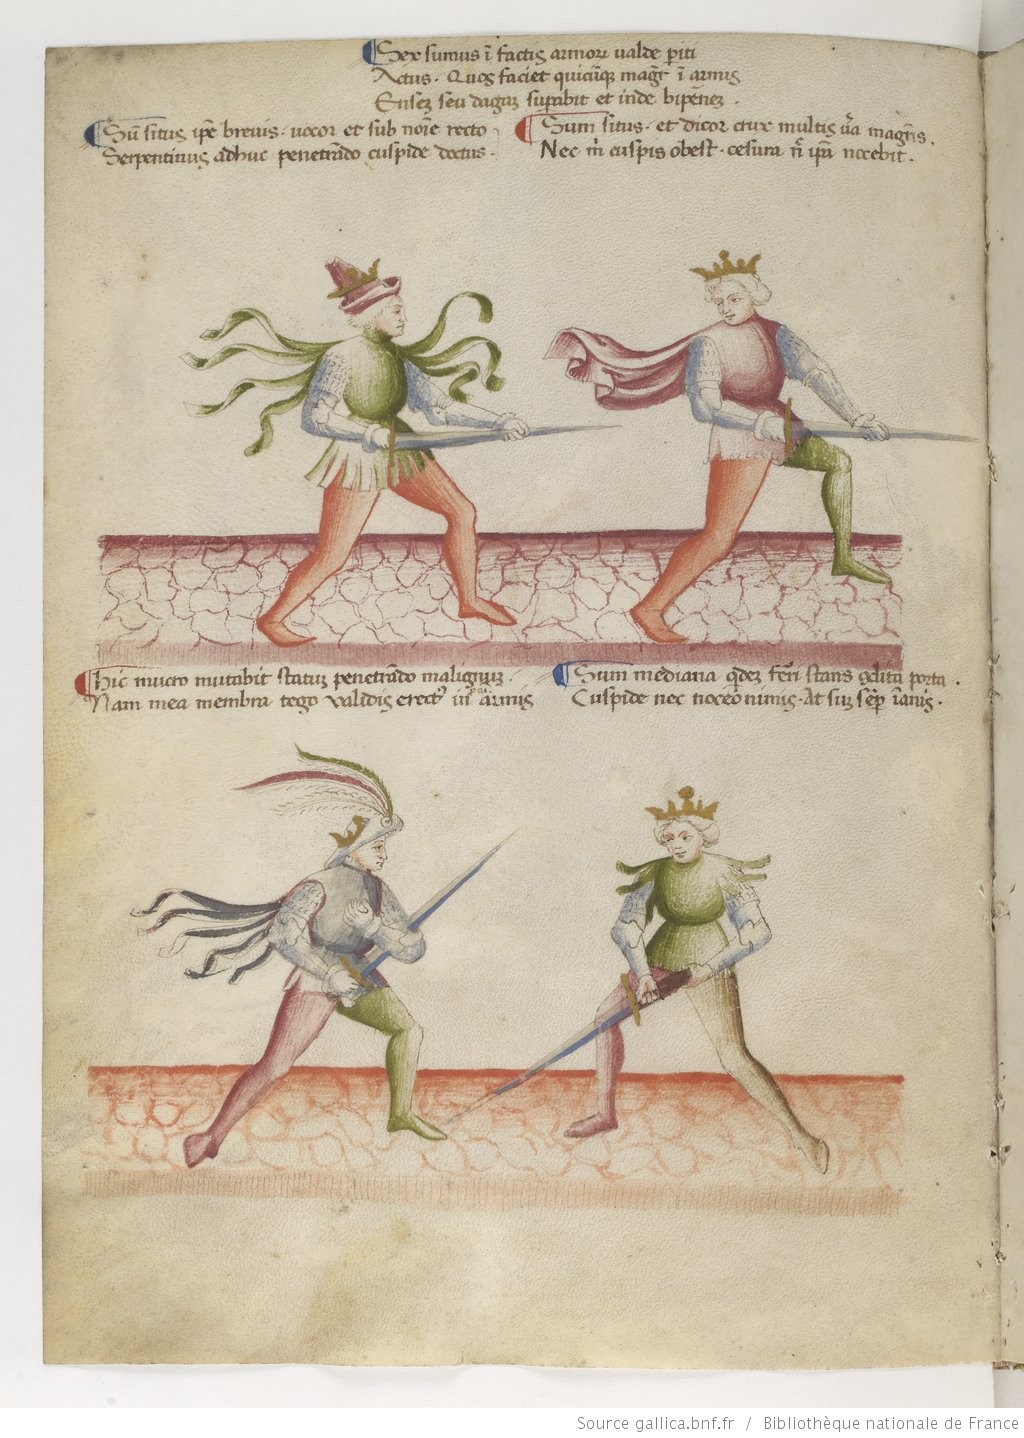 Sex sumus ĩ factis armorꝝ ualde p̱iti
Actus. Quos faciet quicũqꝫ magr̃ ĩ armis
Ensez seu dagaz suꝑabit et inde bipẽnez.
Sũ situs ip̃e breuis. uocor et sub noĩe recto
Serpentinus adhuc penetrãdo cuspide doctus.
Sum situs. et dicor crux multis ur̃a magr̃is.
Nec m̃ cuspis obest. cesura ñ ip̃a nocebit.
Hic mucro mutabit statuz penetrãdo malignuz.
Nam mea membra tego validis erectꝰ in armis
Sum mediana q̃dez ferri stans condita porta.
Cuspide nec noceo nimis. At suz sẽp ĩanis.
Source gallica.bnf.fr / Bibliothèque nationale de France